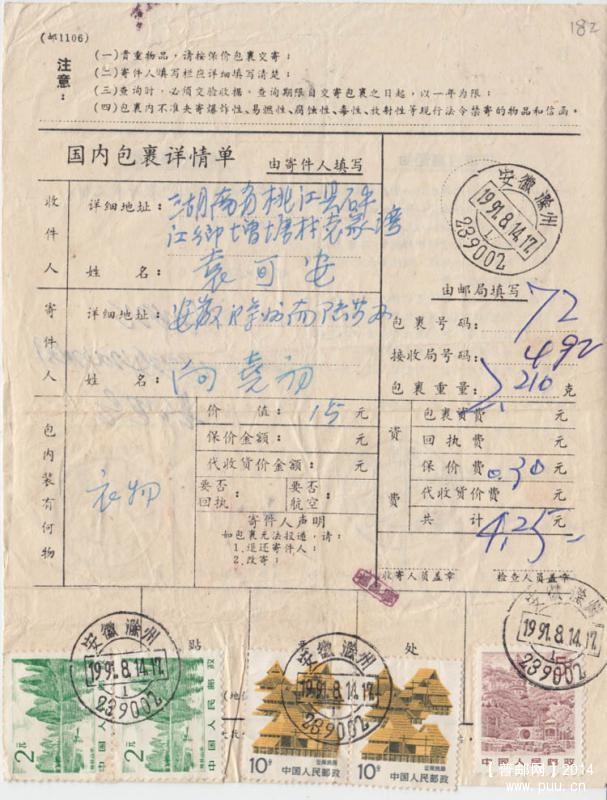 182
(邮1106)
注意：
(一)贵重物品，请按保价包裹交寄：
(二)寄件人填写栏应详细填写清楚：
(三)查询时，必须交验收据。查询期限自交寄包裹之日起，以一年为限：
(四)包裹内不准夹寄爆炸性、易燃性、腐蚀性、毒性、放射性等现行法令禁寄的物品和信函。
国内包裹详情单
由寄件人填写
安徽滁州
1991.8.14.17
1
239002
收件人
详细地址：湖南省桃江县
江乡塘村袁家湾
姓名：袁可安
寄件人
详细地址：安徽
姓名：向尧初
由邮局填写
包裹号码：72
接收局号码：492
包裹重量：210克
包内装有何物
衣物
价值：15元
保价金额：元
代收货价金额：元
要否回执：
要否航空：
寄件人声明
如包裹无法投递，请：
1.退还寄件人：
2.改寄：
资费
包裹资费：元
回执费：元
保价费：0.30元
代收货价费：元
共计4.25元
收寄人员盖章
检查人员盖章
贴
处
安徽滁州
1991.8.14.17
1
239002
安徽滁州
1991.8.14.17
1
239002
1991.8.14.17
1
239002
2元
中国人民邮政
2元
中国人民邮政
10分
中国人民邮政
云南民居
10分
中国人民邮政
云南民居
中国人民邮政
【普邮网】2014
www.puu.cn